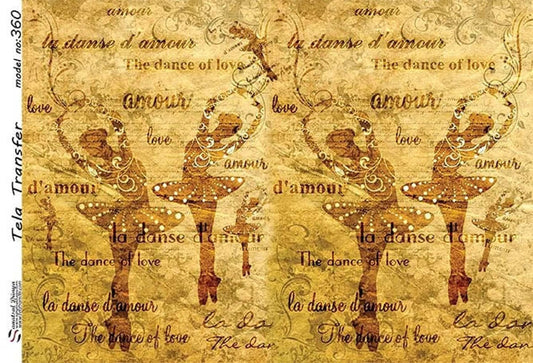 Tela Transfer model no:360
amour
la danse d'amour
The dance of love
amour
love
love
amour
d'amour
la danse d'amour
The dance of love
la danse d'amour
The dance of love
la da
The dan
amour
la danse d'amour
The dance of love
amour
love
love
amour
d'amour
la danse d'amour
The dance of love
la danse d'amour
The dance of love
la da
The dan